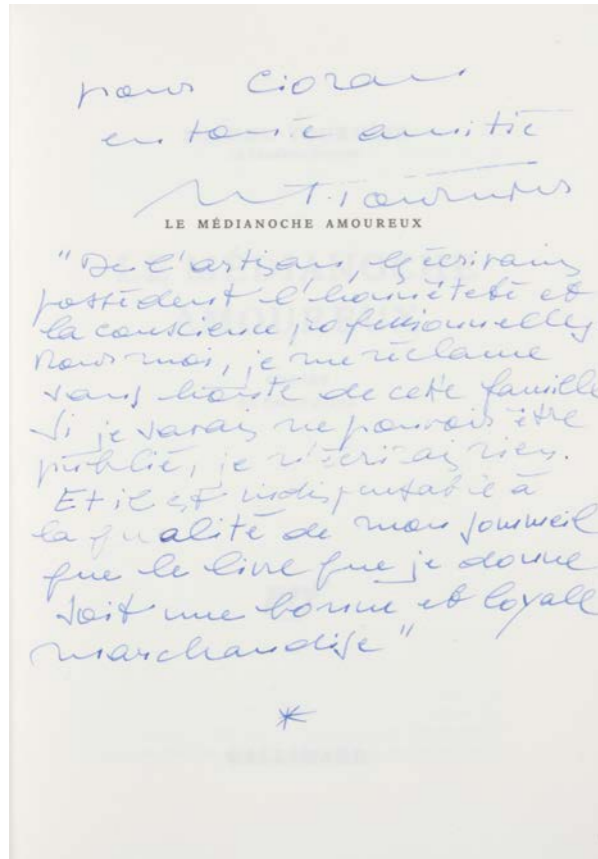 pour Cioran
en toute amitié
M. Tournier
LE MÉDIANOCHE AMOUREUX
"De l'artisan, les écrivains
possèdent l'honnêteté et
la conscience professionnelles
Pour moi, je me réclame
sans honte de cette famille
Si je savais ne pouvoir être
publié, je n'écrirais rien.
Et il est indispensable à
la qualité de mon sommeil
que le livre que je donne
soit une bonne et loyale
marchandise"
*